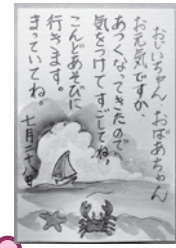 おじいちゃん おばあちゃん
お元気ですか、
あつくなってきたので、
気をつけてすごしてね。
こんどあそびに
行きます。
まっていてね。
七月二十八日